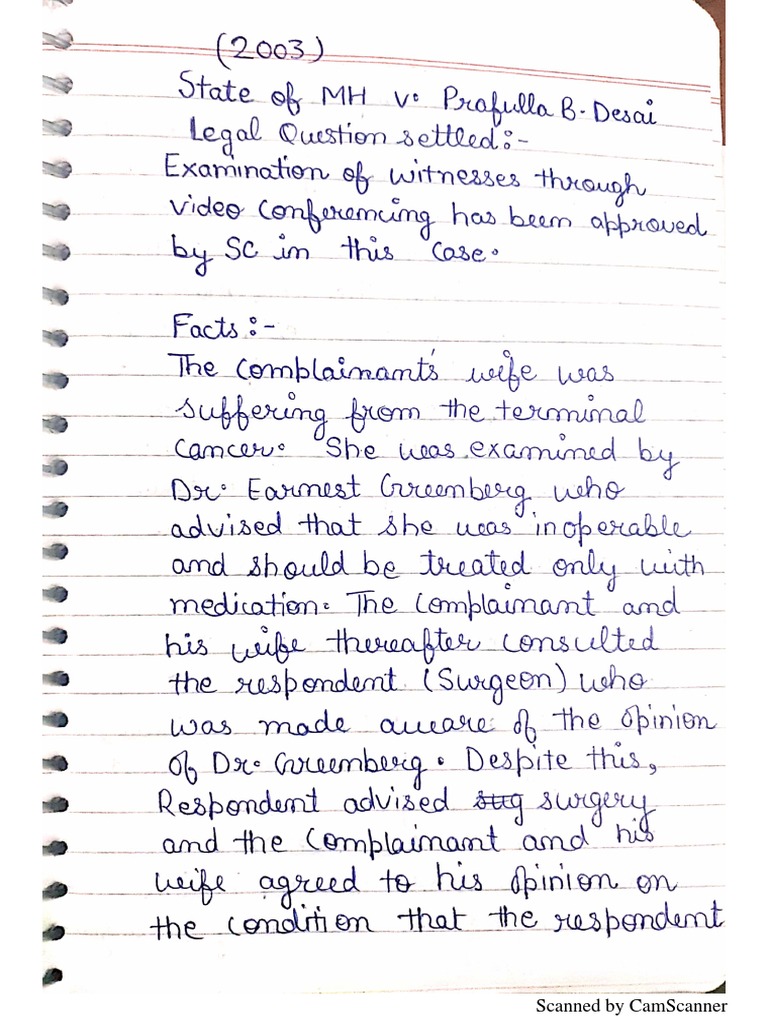 (2003)
State of MH v. Prafulla B. Desai
Legal Question settled:-
Examination of witnesses through
video conferencing has been approved
by SC in this case.
Facts:-
The complainant's wife was
suffering from the terminal
cancer. She was examined by
Dr. Earnest Greenberg who
advised that she was inoperable
and should be treated only with
medication. The complainant and
his wife thereafter consulted
the respondent (Surgeon) who
was made aware of the opinion
of Dr. Greenberg. Despite this,
Respondent advised sug surgery
and the complainant and his
wife agreed to his opinion on
the condition that the respondent
Scanned by CamScanner